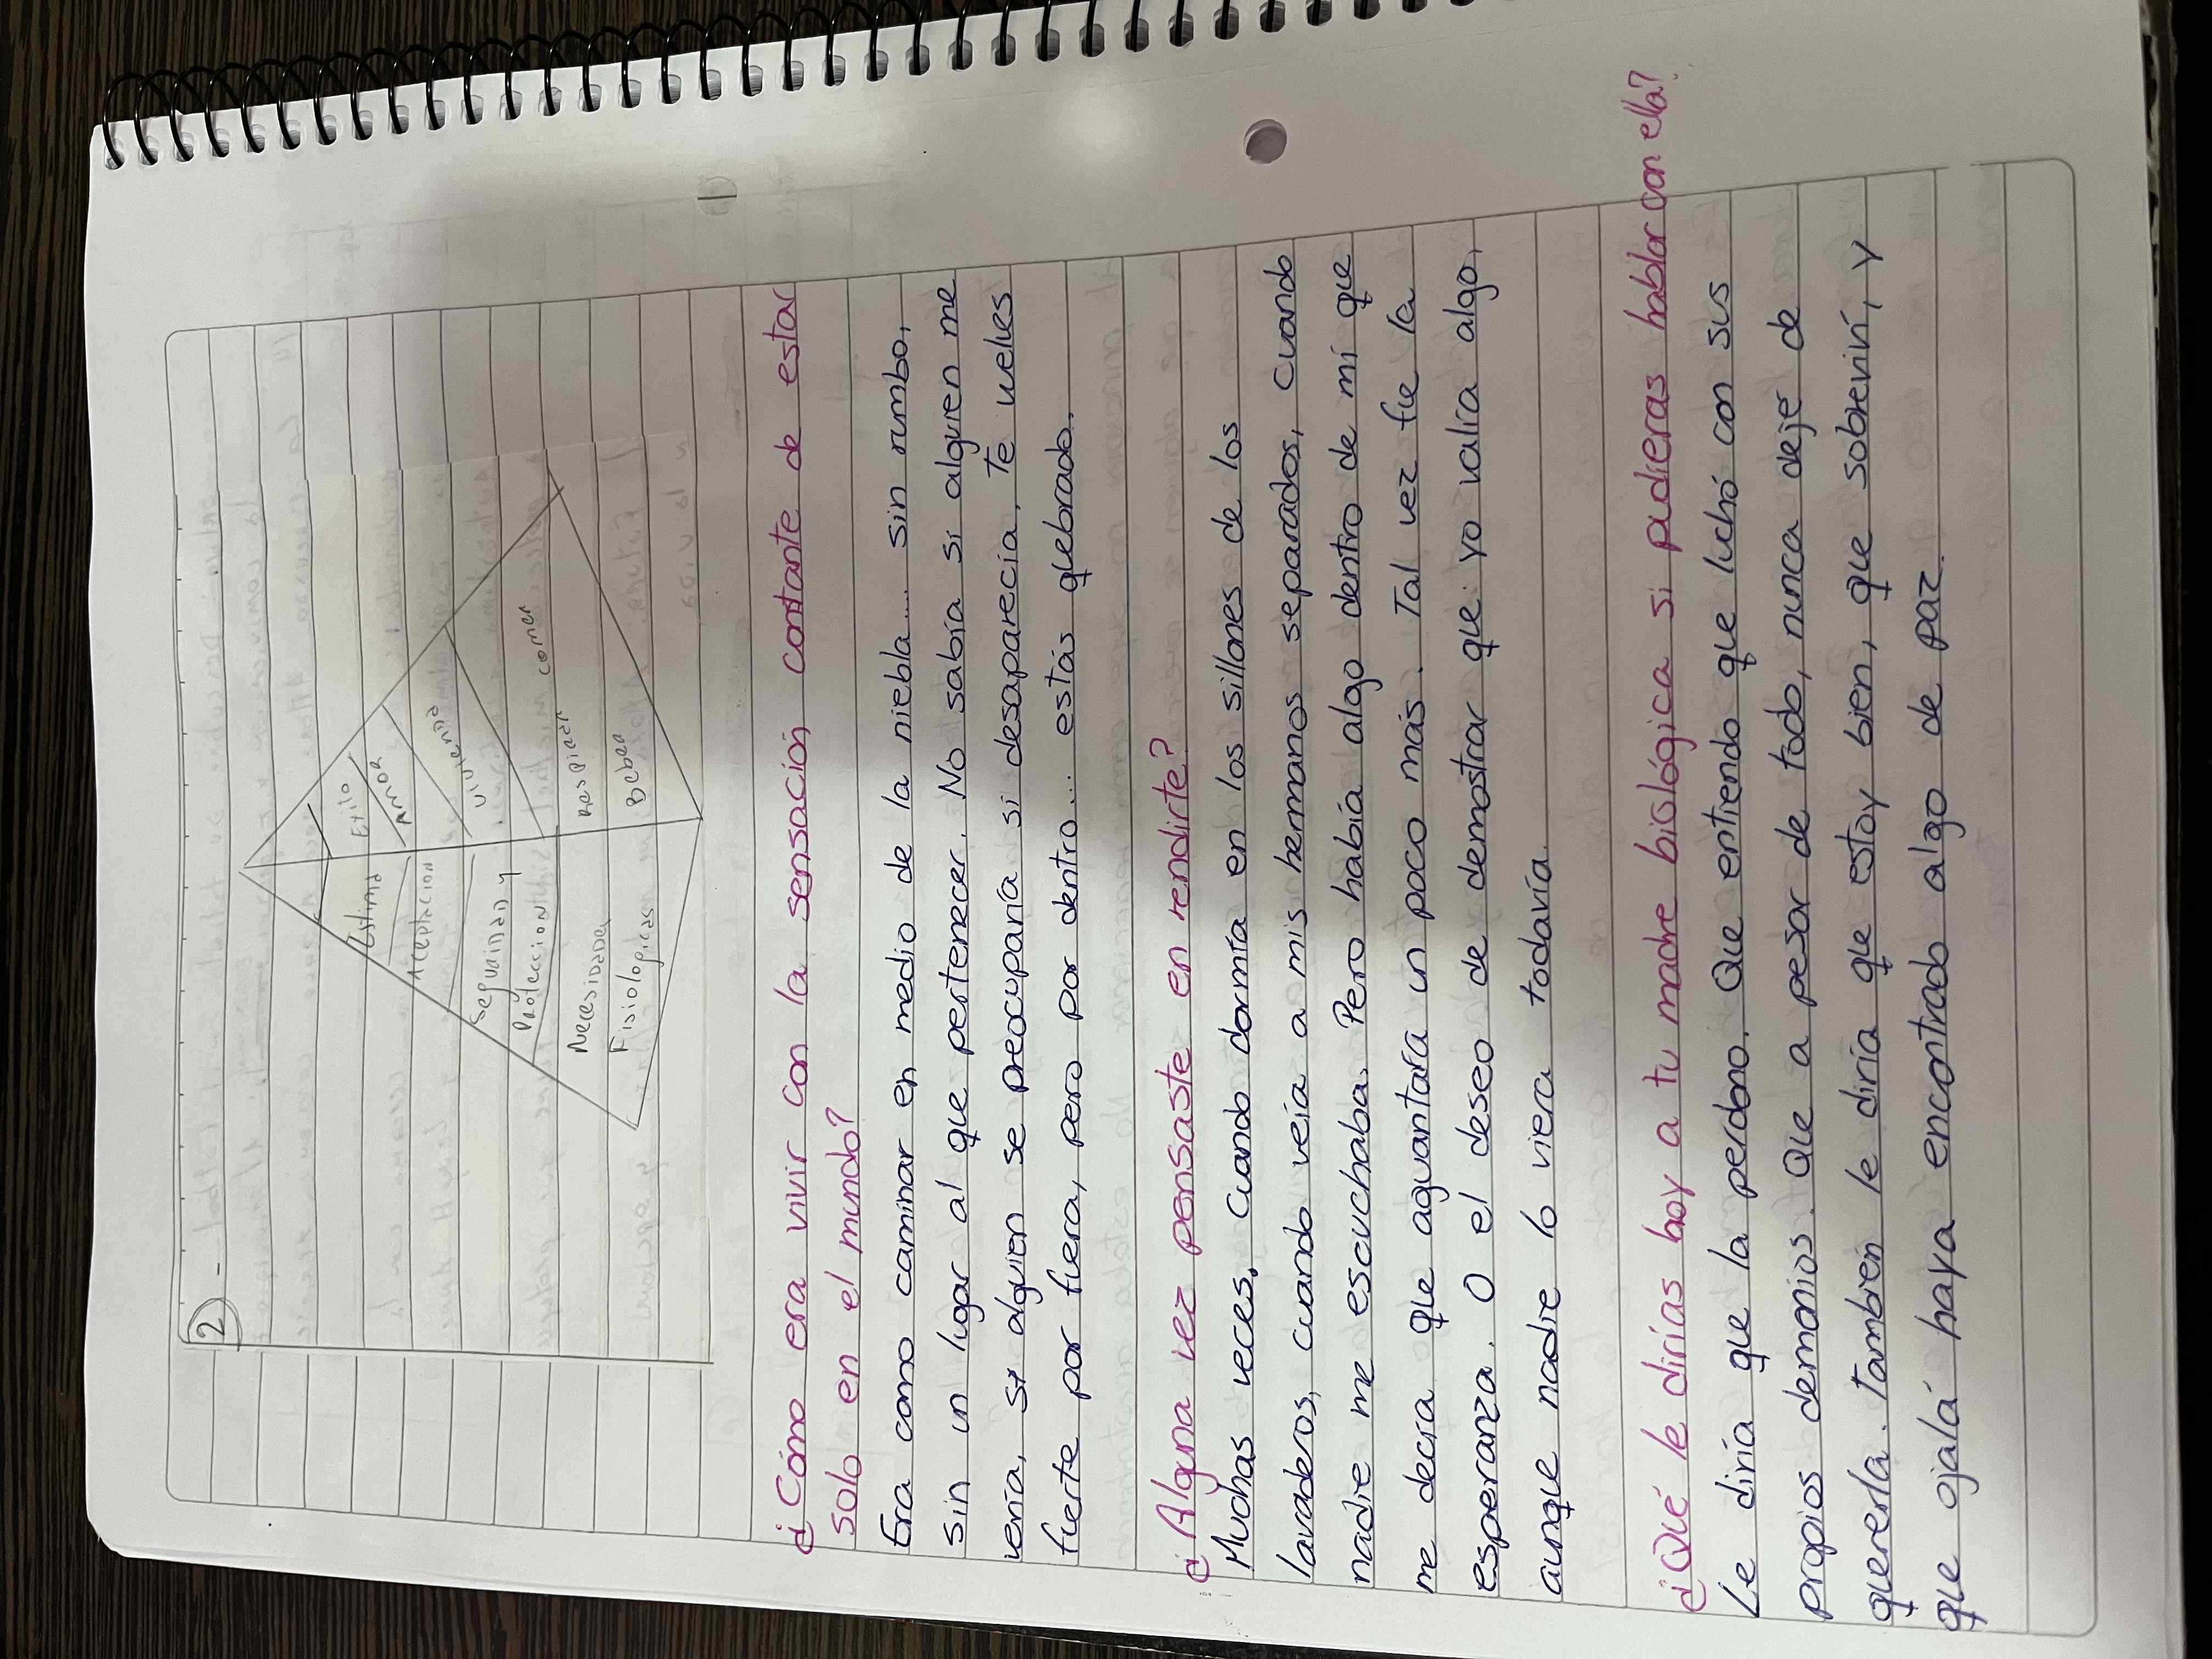 2 -
Exito
Estima
Amor
Aceptacion
Vivienda
Seguridad y
Proteccion
comer
Respirar
Necesidades
Fisiologicas
Beber
¿Cómo era vivir con la sensación contante de estar
solo en el mundo?
Era como caminar en medio de la niebla.... sin rumbo,
sin un lugar al que pertenecer. No sabía si alguien me
vería, si alguien se preocuparía si desaparecía. Te vuelves
fuerte por fuera, pero por dentro... estás quebrado.
¿Alguna vez pensaste en rendirte?
Muchas veces. Cuando dormía en los sillones de los
lavaderos, cuando veía a mis hermanos separados, cuando
nadie me escuchaba. Pero había algo dentro de mí que
me decía que aguantara un poco más. Tal vez fue la
esperanza. O el deseo de demostrar que yo valía algo,
aunque nadie lo viera todavía.
¿Qué le dirías hoy a tu madre biológica si pudieras hablar con ella?
Le diría que la perdono. Que entiendo que luchó con sus
propios demonios. Que a pesar de todo, nunca dejé de
quererla. También le diría que estoy bien, que sobreviví, y
que ojalá haya encontrado algo de paz.